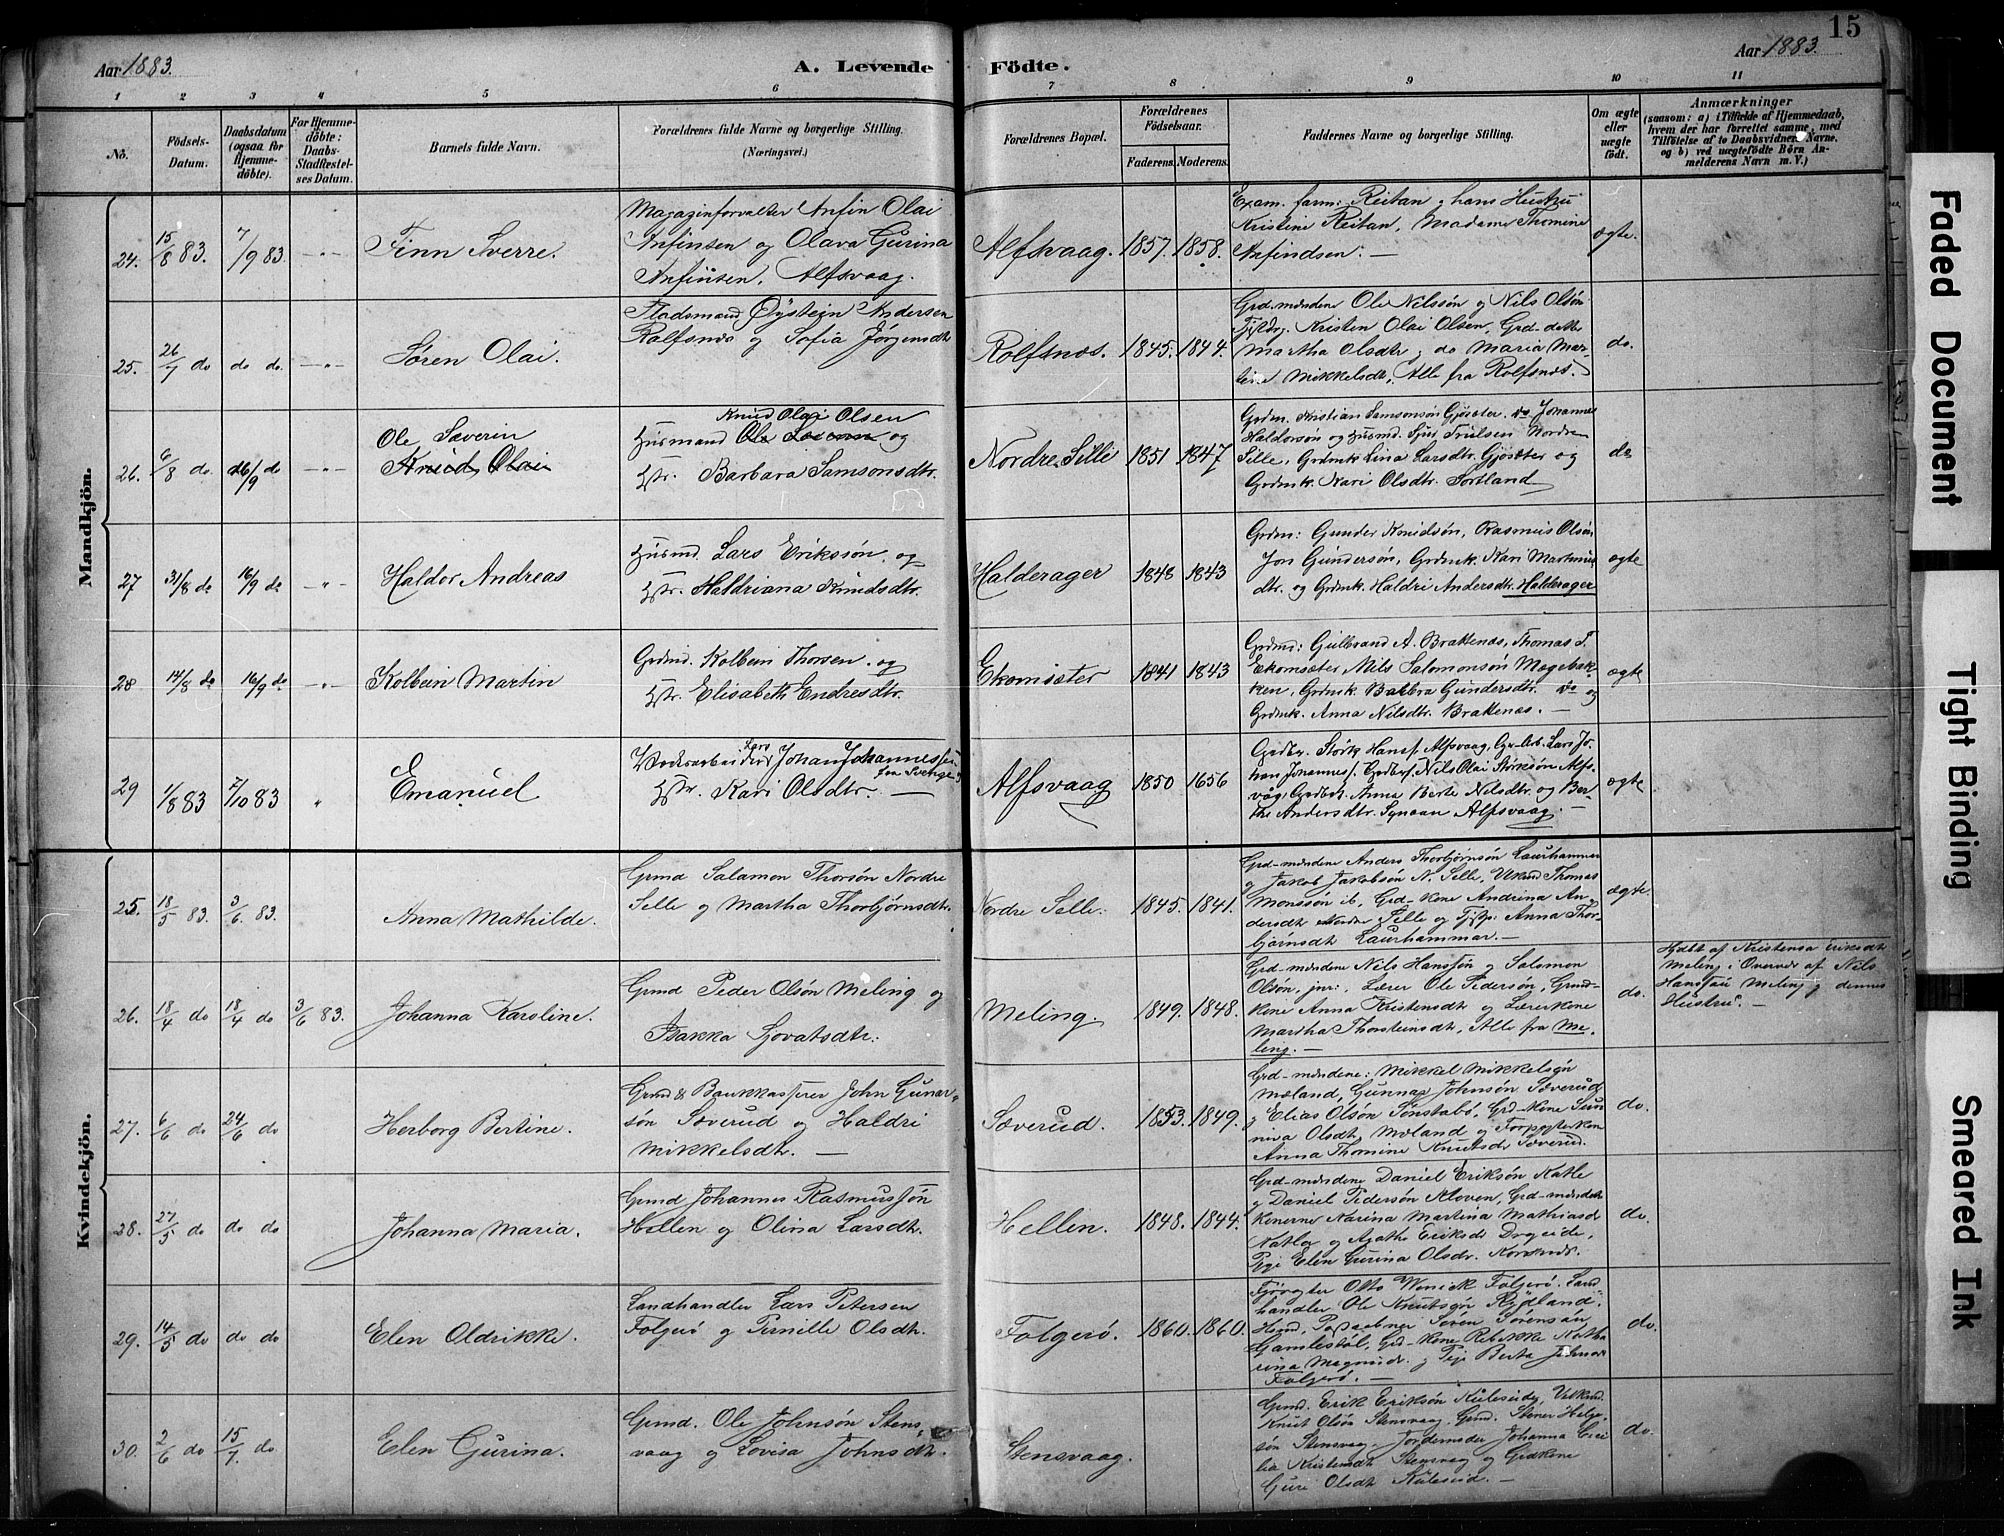 15
Aar 1883.
A. Levende Födte.
Aar 1883.
1 2 3 4 5 6 7 8 9 10 11
No.
Födsels-
Datum.
Daabsdatum
(ogsaa for
Hjemme-
döbte).
For Hjemme-
döbte:
Daabs-
Stadfæstel-
ses Datum.
Barnets fulde Navn.
Forældrenes fulde Navne og borgerlige Stilling.
(Næringsvei.)
Forældrenes Bopæl.
Forældrenes
Födselsaar.
Faderens. Moderens.
Faddernes Navne og borgerlige Stilling.
Om ægte
eller
uægte
födt.
Anmærkninger
(saasom: a) i Tilfælde af Hjemmedaab,
hvem der har forrettet samme, med
Tilföielse af to Daabsvidners Navne,
og b) ved uægtefödte Börn An-
melderens Navn m. V.)
Mandkjön.
24. 15/8 83. 7/9 83. -"- Finn Sverre.
Magazinforvalter Anfin Olai
Anfinsen og Olava Gurina
Anfinsen, Alfsvaag.
Alfsvaag. 1857. 1858.
Exam. farm: Reitan, hans Hustru
Kristine Reitan, Madame Thomine
Anfindsen. —
ægte.
25. 26/7 do do do. -"- Søren Olai.
Pladsmand Øystein Andersen
Rolfsnæs og Sofia Jørgensdt
Rolfsnæs. 1845. 1844.
Grd.mændene Ole Nilssøn og Nils Olsøn
Kristen Olai Olsen, Grd.dattr
Martha Olsdtr og do Maria Mar-
tina Mikkelsdt, Alle fra Rolfsnæs.
do.
26. 6/8 do. 16/9 do -"- Ole Severin
Knud Olai
Knud Olai Olsen
Husmand Ole Severin og
Hstr. Barbara Samsonsdtr.
Nordre Selle 1851 1847
Grdm. Kristian Samsonsøn Gjøsæter, do Johannes
Haldorsøn og Husmd. Sjur Trulsen Nordre
Selle, Grdmk. Lina Larsdtr. Gjøsæter og
Grdmk. Kari Olsdtr. Sortland
do
27 31/8 do 16/9 do -"- Haldor Andreas
Husmd. Lars Erikssøn og
Hstr. Haldriana Knudsdtr.
Halderager 1848 1843
Grdm: Gunder Knudsøn, Rasmus Olsøn
Jon Gundersøn, Grdmk. Kari Markus
dtr. og Grdmk. Haldri Andersdtr. Halderager
ægte
28 14/8 do 16/9 do -"- Kolbein Martin
Grdmd. Kolbein Thorsen og
Hstr. Elisabeth Endresdtr.
Ekornsæter 1841 1843
Grdmd: Gulbrand A. Brakenæs, Thomas T.
Ekornsæter, Nils Salomonsøn Mogebak-
ken, Grdmk. Barbra Gundersdtr. do og
Grdmk. Anna Nilsdtr. Brakenæs. —
ægte
29 1/8 83 7/10 83 " Emanuel
Lars Johan Johannessen
fra Sverige
Hstr. Kari Olsdtr. —
Alfsvaag 1850 1656
Grdbr. Størk Hans. Alfsvaag, Lars Jo-
han Johannes. Nils Olai Størksøn Alfs-
våg, Anna Berte Nilsdtr. og Ber-
the Andersdtr. Alfsvaag. —
ægte
Kvindekjön.
25. 18/5 83. 3/6. 83. Anna Mathilde.
Grmd Salamon Thorsøn Nordre
Selle og Martha Thorbjørnsdt.
Nordre Selle. 1845. 1841.
Grd-mændene Anders Thorbjørnsøn Laurhammer
og Jakob Jakobsøn N. Selle, Thomas
Monssøn ib, Grd-kone Andrina An-
dersdt Nordre Selle og Anna Thor-
bjørnsdt Laurhammar. —
ægte
26. 18/4 do 18/4 do 3/6 83. Johanna Karoline.
Grmd Peder Olsøn Meling og
Bakka Sjovatsdtr.
Meling. 1849. 1848.
Grd-mændene Nils Hanssøn og Salamon
Olsøn, jnr., Lærer Ole Pedersøn, Grmd-
kone Anna Kristensdt og Lærerkone
Martha Thorsteinsdt, Alle fra Me-
ling. —
do.
Hjdbt af Kristensa Eriksdt
Meling i Overvær af Nils
Hanssøn Meling og dennes
Hustru.
27. 6/6 do 24/6 do Herborg Bertine.
Grmd & Bankkasserer John Gunar-
søn Sæverud og Haldri
Mikkelsdt. —
Sæverud. 1853. 1849.
Grd-mændene: Mikkel Mikkelsøn
Mæland, Gunnar Johnsøn Sæverud
og Elias Olsøn Sønstabø, Grd-kone Sun
niva Olsdt Mæland og
Anna Thomine Knutsdr Sæverud.
do.
28. 27/5 do do do Johanna Maria.
Grmd Johannes Rasmussøn
Hellen og Olina Larsdt.
Hellen. 1848. 1844.
Grd-mændene Daniel Eriksøn Katle
og Daniel Pedersøn Kloven, Grd-mænds-
konerne Karina Martina Mathiasd
Katla og Agathe Eriksdt Drgeide,
Pge Elen Gurina Olsdr. Kornes.
do.
29. 14/5 do do do Elen Oldrikke.
Landhandler Lars Petersen
Folgerø og Pernille Olsdt.
Folgerø. 1860. 1860.
Otto Winick Folgerø. Land
handler Ole Knutsøn Rydland.
Søren Sørensøn
Gamlestøl, Grd-kone Rebekke Katha
rina Magnusdr. og Pge Berta
Folgerø. —
do.
30. 2/6 do 15/7. do Elen Gurina.
Grmd. Ole Johnsøn Stens-
vaag og Lovisa Johnsdt.
Stensvaag.
Grmd. Erik Eriksøn Kuleseid,
Knut Olsøn Stensvaag, Grmd. Stener Helge-
søn Stensvaag, Jordemoder Johanna Ceci
lia Kristensdt Stensvaag og Grdkone
Guri Olsdt Kuleseid. —
do.
Faded Document
Tight Binding
Smeared Ink